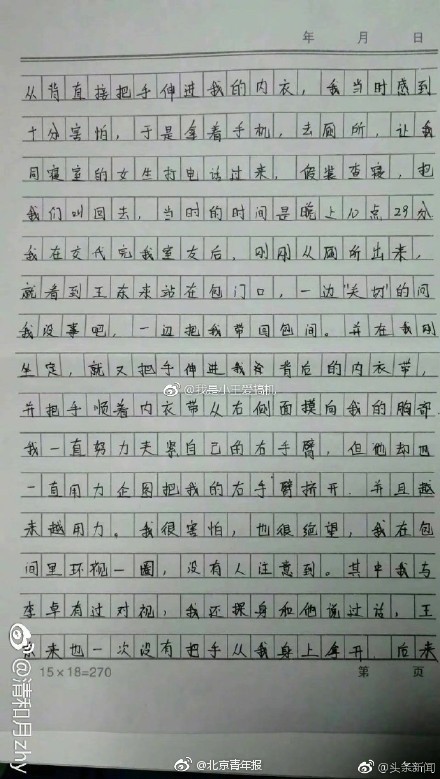 年 月 日
从背直接把手伸进我的内衣，我当时感到
十分害怕，于是拿着手机，去厕所，让我
同寝室的女生打电话过来，假装查寝，把
我们叫回去，当时的时间是晚上10点29分
我在交代完我室友后，刚刚从厕所出来，
就看到王东来站在包门口，一边“关切”的问
我没事吧，一边把我带回包间。并在我刚
坐定，就又把手伸进我 背后的内衣带，
@我是小王爱搞机
并把手顺着内衣带从右侧面摸向我的胸部
我一直努力夹紧自己的右手臂，但他却也
一直用力企图把我的右手臂挤开．并且越
来越用力。我很害怕，也很绝望，我在包
间里环视一圈，没有人注意到。其中我与
李卓有过对视，我还探身和他说过话，王
东来也一次没有把手从我身上拿开．后来
15×18=270 第 页
@清和月zhy
@北京青年报
@头条新闻